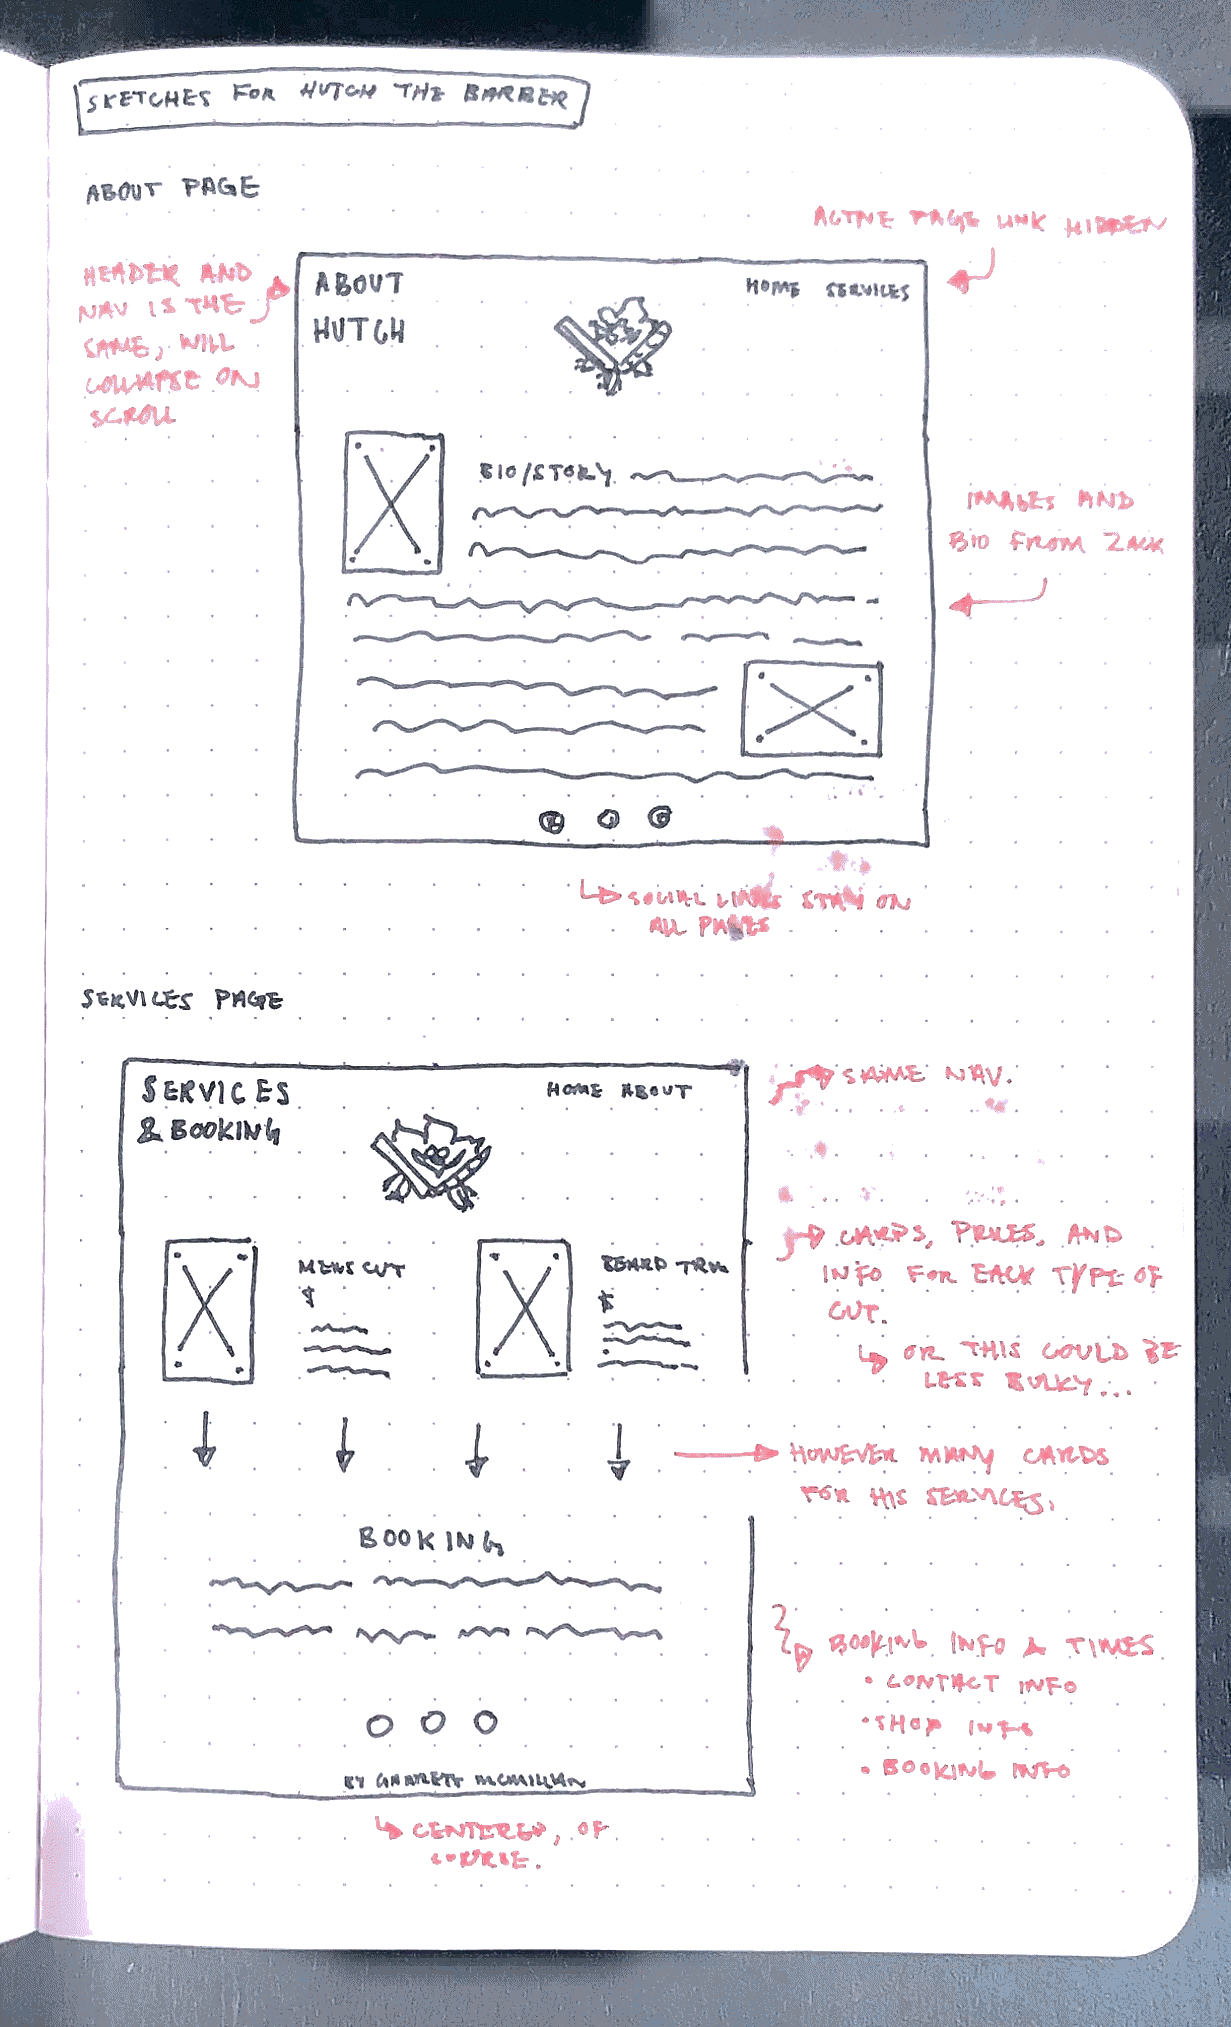 SKETCHES FOR HUTCH THE BARBER
ABOUT PAGE
ACTIVE PAGE LINK HIDDEN
HEADER AND
NAV IS THE
SAME, WILL
COLLAPSE ON
SCROLL
ABOUT
HUTCH
HOME SERVICES
BIO/STORY
IMAGES AND
BIO FROM ZACK
SOCIAL LINKS STAY ON
ALL PAGES
SERVICES PAGE
SERVICES
& BOOKING
HOME ABOUT
SAME NAV.
MENS CUT
$
BEARD TRIM
$
CARDS, PRICES, AND
INFO FOR EACH TYPE OF
CUT.
OR THIS COULD BE
LESS BULKY...
HOWEVER MANY CARDS
FOR HIS SERVICES.
BOOKING
BOOKING INFO & TIMES
• CONTACT INFO
• SHOP INFO
• BOOKING INFO
BY GARRETT MCMILLAN
CENTERED, OF
COURSE.